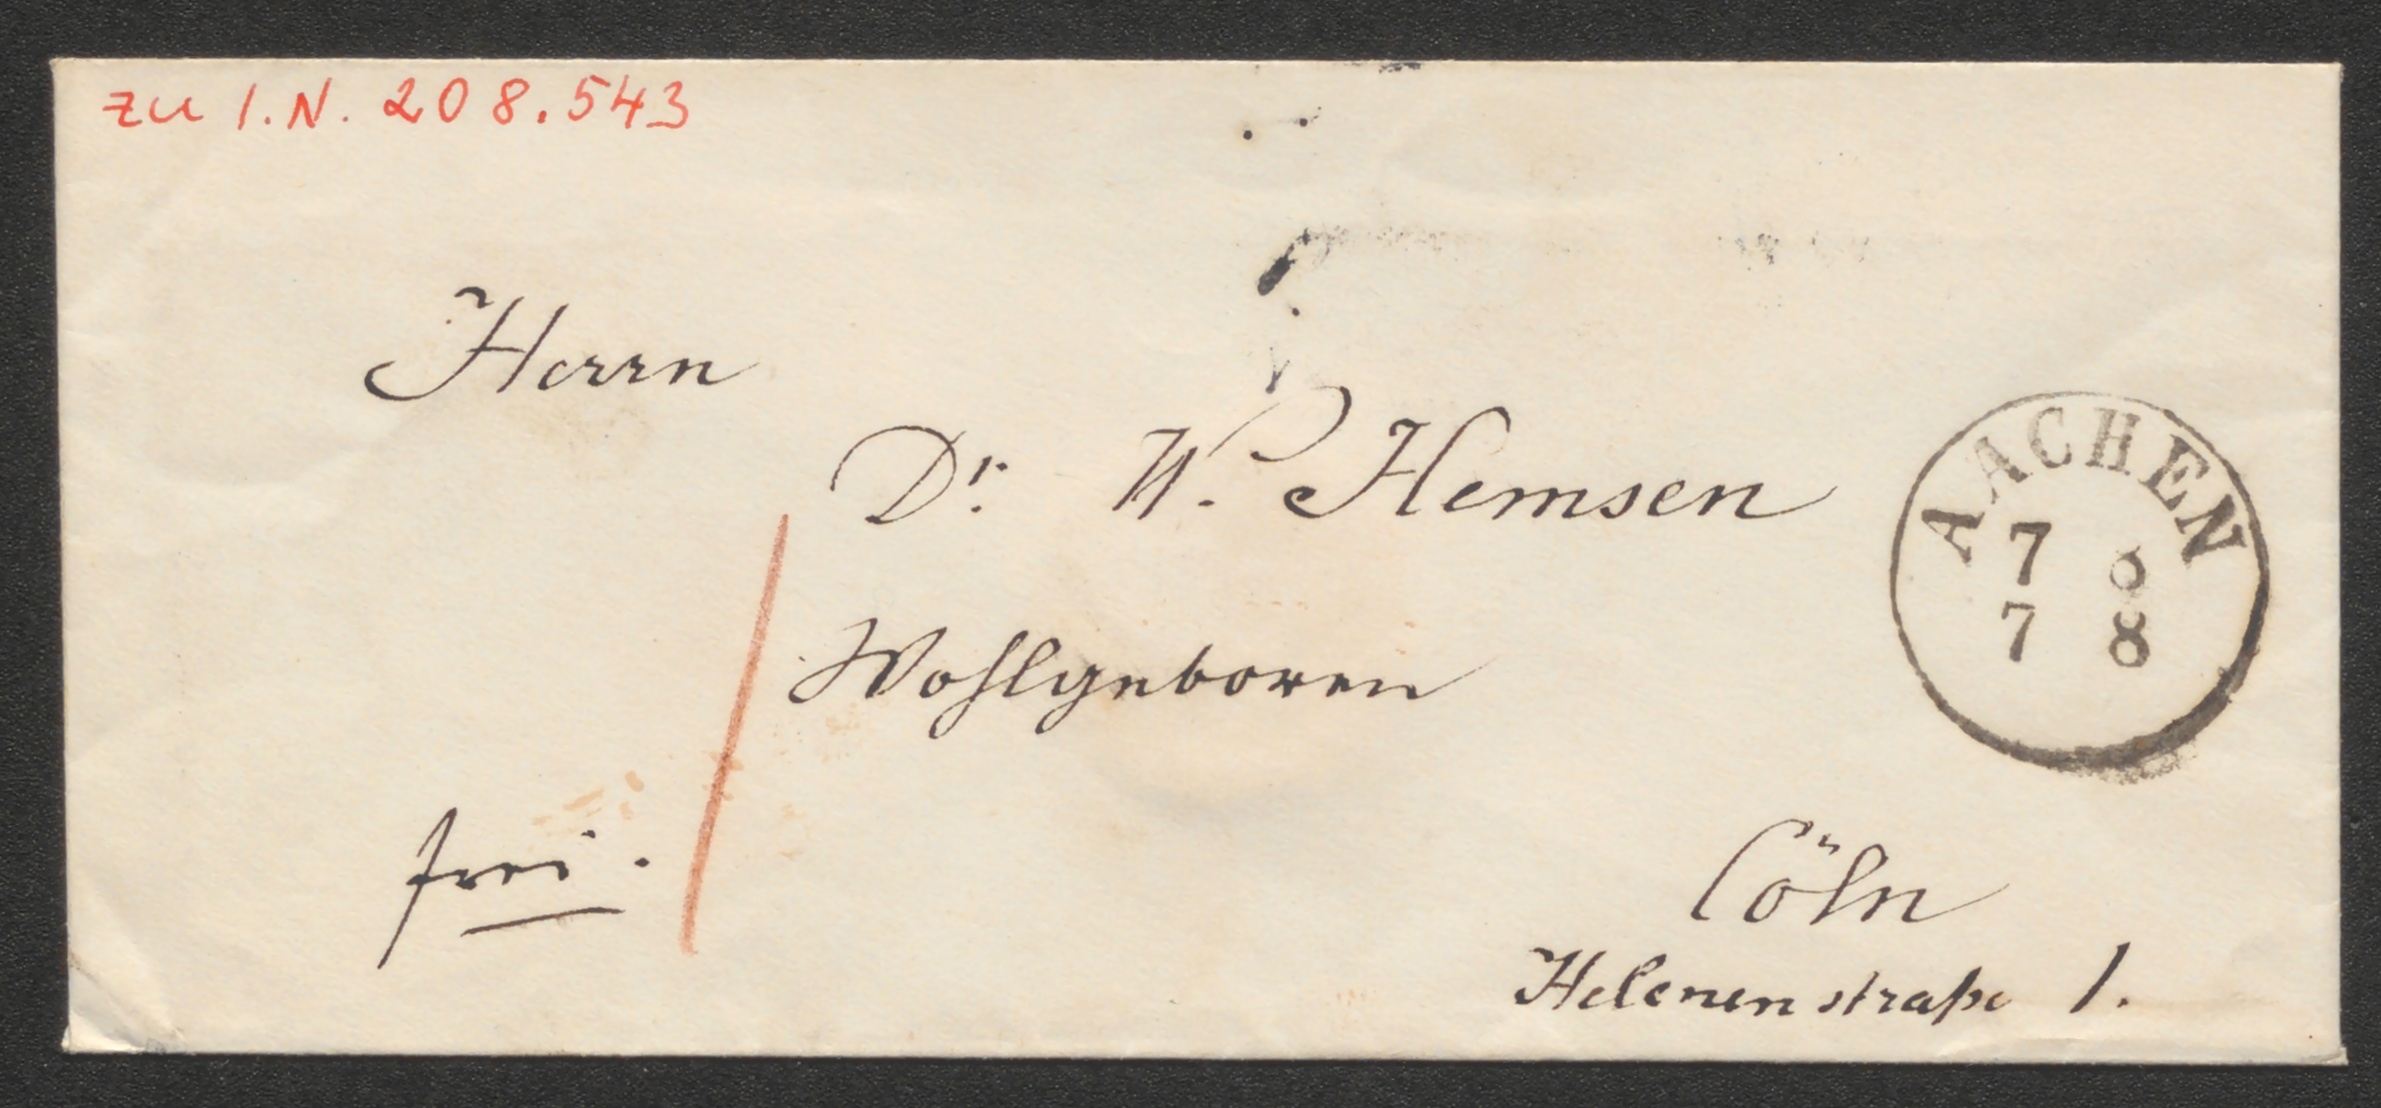 zu I.N. 208.543
Herrn
Dr. W. Hemsen
AACHEN
7 8
7 8
Wohlgeboren
frei.
Cöln
Helenenstraße 1.